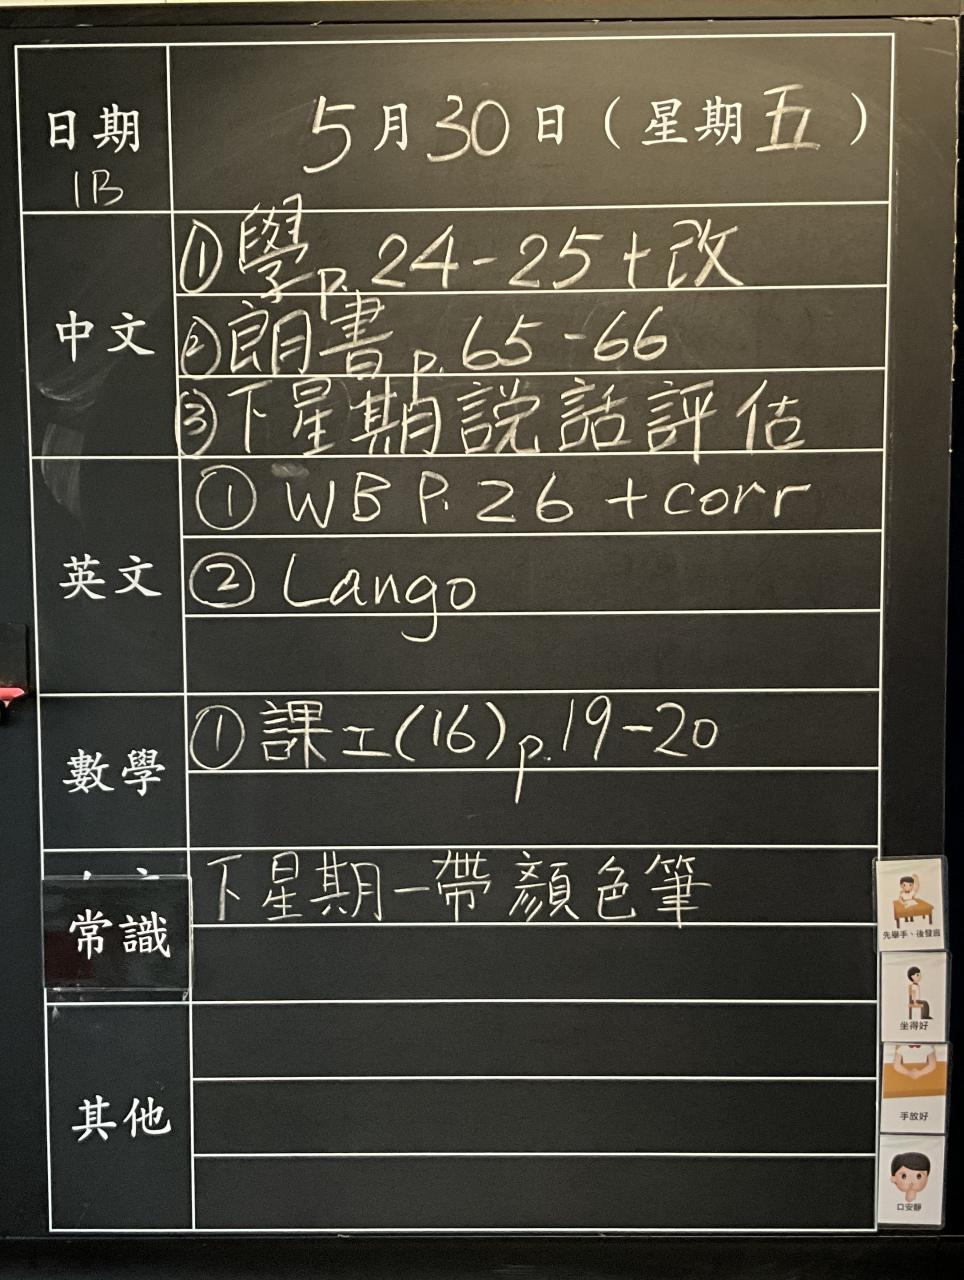 日期
1B
5月30日（星期五）
中文
①學p.24-25+改
②朗書p.65-66
③下星期説話評估
英文
① WB P.26 +corr
② Lango
數學
①課工(16)p.19-20
常識
下星期一帶顏色筆
其他
先舉手、後發言
坐得好
手放好
口安靜